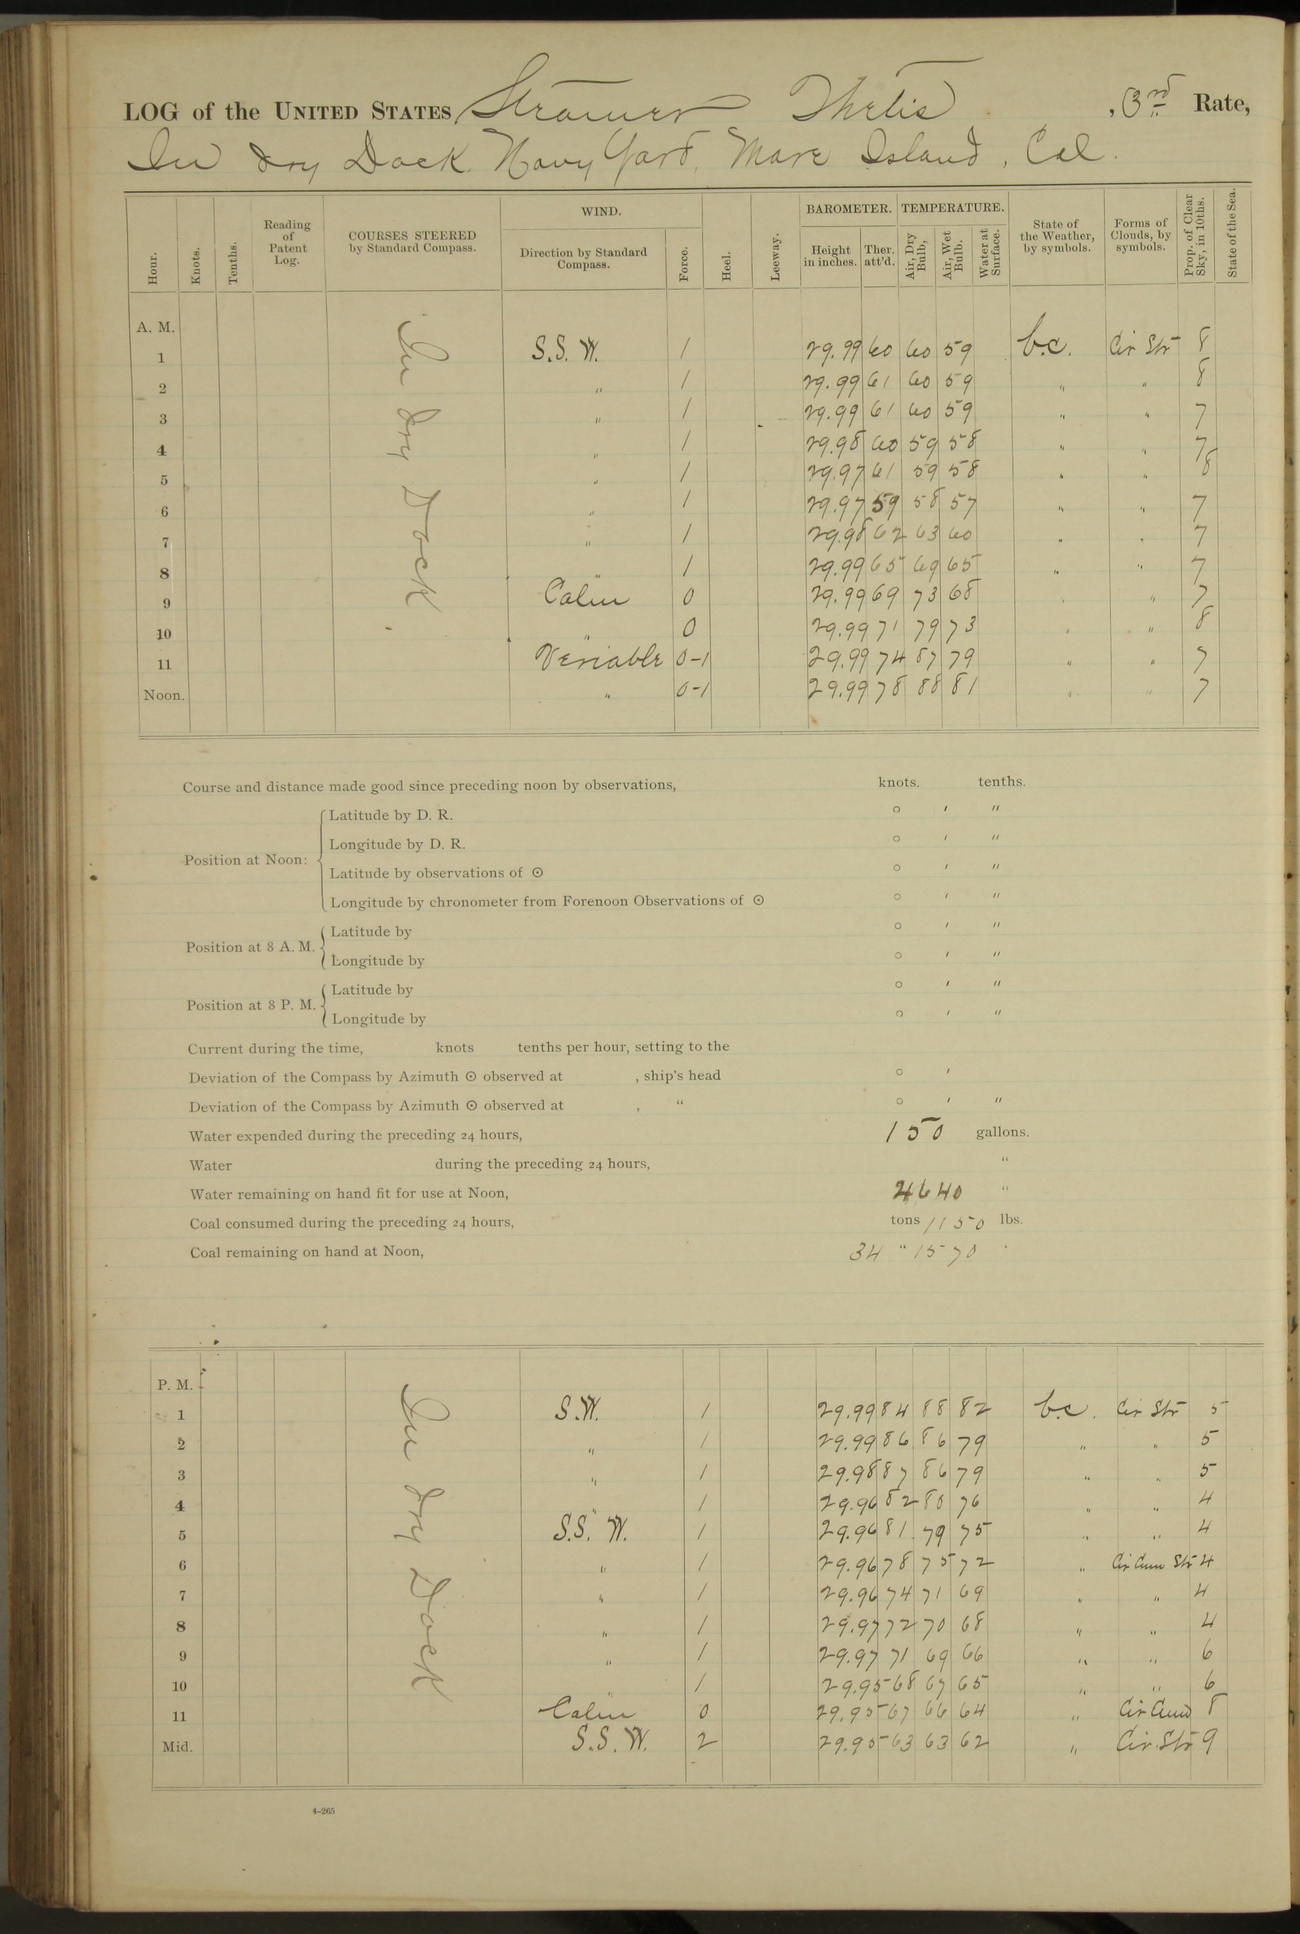 LOG of the UNITED STATES Steamer Thetis , 3rd Rate,
In Dry Dock. Navy Yard, Mare Island, Cal.
Hour. Knots. Tenths. Reading of Patent Log. COURSES STEERED by Standard Compass. WIND. Direction by Standard Compass. Force. Heel. Leeway. BAROMETER. Height in inches. Ther. att'd. TEMPERATURE. Air, Dry Bulb, Air, Wet Bulb. Water at Surface. State of the Weather, by symbols. Forms of Clouds, by symbols. Prop. of Clear Sky, in 10ths. State of the Sea.
A. M.
In Dry Dock.
1 S.S. W. 1 29.99 60 60 59 b.c. Cir Str 8
2 " 1 29.99 61 60 59 " " 8
3 " 1 29.99 61 60 59 " " 7
4 " 1 29.98 60 59 58 " " 7
5 " 1 29.97 61 59 58 " " 8
6 " 1 29.97 59 58 57 " " 7
7 " 1 29.98 62 63 60 " " 7
8 " 1 29.99 65 69 65 " " 7
9 Calm 0 29.99 69 73 68 " " 7
10 " 0 29.99 71 79 73 " " 8
11 Veriable 0-1 29.99 74 87 79 " " 7
Noon. " 0-1 29.99 78 88 81 " " 7
Course and distance made good since preceding noon by observations, knots. tenths.
Position at Noon:
Latitude by D. R. ° ′ ″
Longitude by D. R. ° ′ ″
Latitude by observations of ☉ ° ′ ″
Longitude by chronometer from Forenoon Observations of ☉ ° ′ ″
Position at 8 A. M.
Latitude by ° ′ ″
Longitude by ° ′ ″
Position at 8 P. M.
Latitude by ° ′ ″
Longitude by ° ′ ″
Current during the time, knots tenths per hour, setting to the
Deviation of the Compass by Azimuth ☉ observed at , ship's head ° ′
Deviation of the Compass by Azimuth ☉ observed at , " ° ′ ″
Water expended during the preceding 24 hours, 150 gallons.
Water during the preceding 24 hours, "
Water remaining on hand fit for use at Noon, 4640 "
Coal consumed during the preceding 24 hours, tons 1150 lbs.
Coal remaining on hand at Noon, 34 " 1570 "
P. M.
In Dry Dock
1 S.W. 1 29.99 84 88 82 b.c. Cir Str 5
2 " 1 29.99 86 86 79 " " 5
3 " 1 29.98 87 86 79 " " 5
4 " 1 29.96 82 80 76 " " 4
5 S.S. W. 1 29.96 81 79 75 " " 4
6 " 1 29.96 78 75 72 " Cir Cum Str 4
7 " 1 29.96 74 71 69 " " 4
8 " 1 29.97 72 70 68 " " 4
9 " 1 29.97 71 69 66 " " 6
10 " 1 29.95 68 67 65 " " 6
11 Calm 0 29.95 67 66 64 " Cir Cum 8
Mid. S.S. W. 2 29.95 63 63 62 " Cir. Str 9
4-265